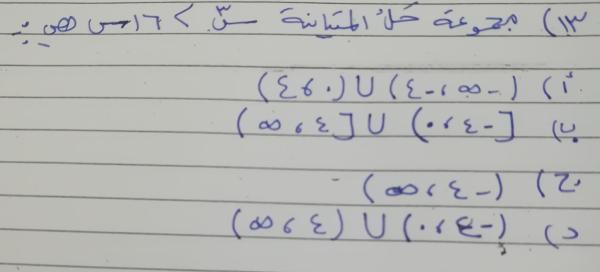 ١٣) مجموعة حل المتباينة س٣ > ١٦س هي :-
أ) (-∞، -٤) ∪ (٠، ٤)
ب) [-٤، ٠) ∪ [٤، ∞)
ج) (-٤، ∞)
د) (-٤، ٠) ∪ (٤، ∞)